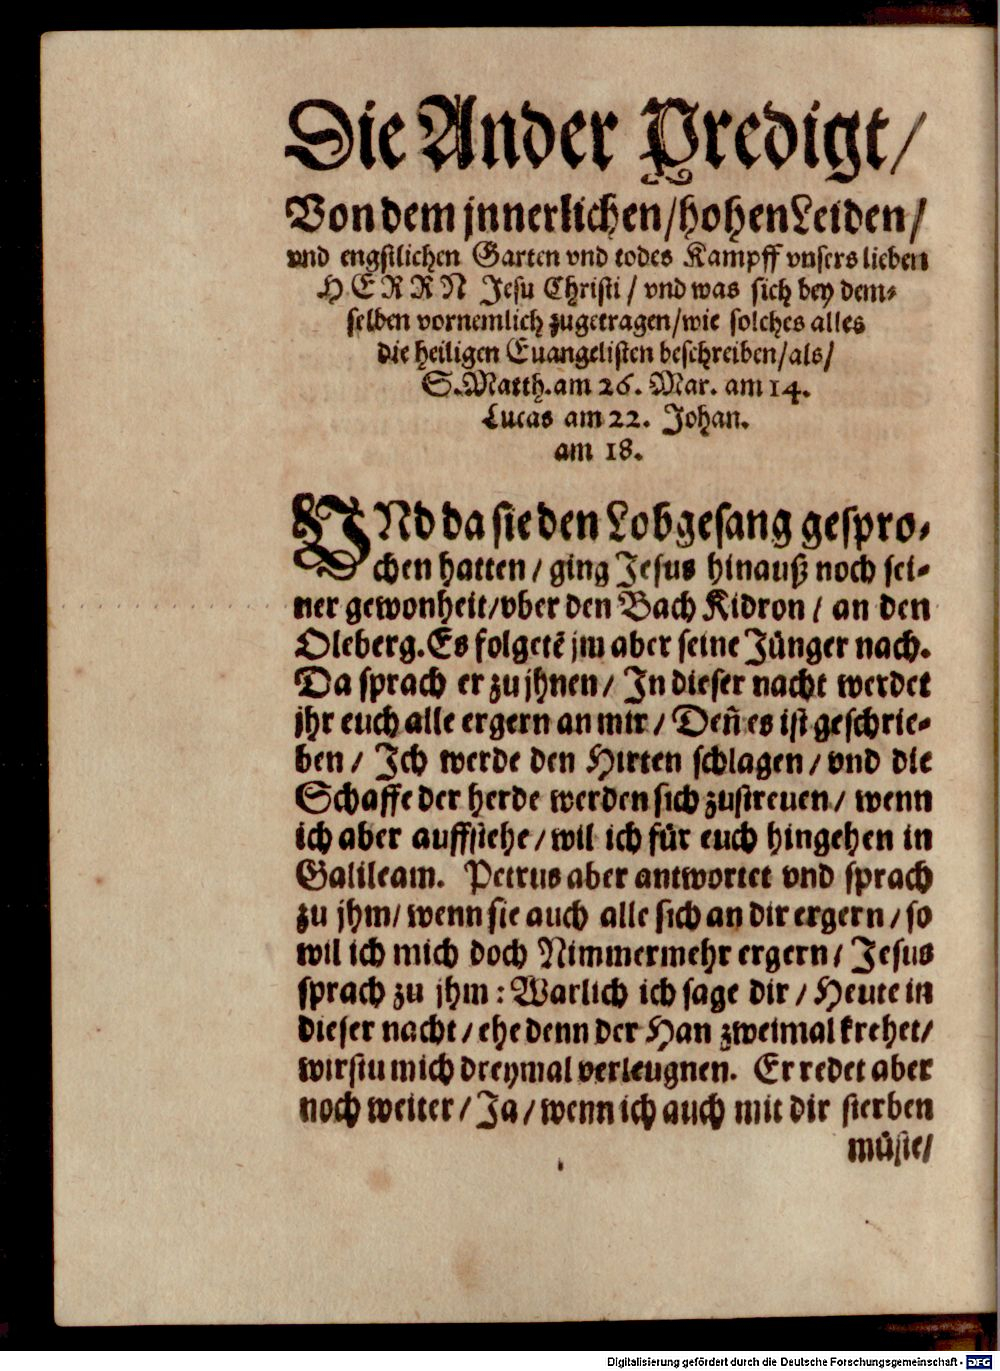 Die Ander Predigt/
Von dem jnnerlichen/hohen Leiden/
vnd engstlichen Garten vnd todes Kampff vnsers lieben
HERRN Jesu Christi / vnd was sich bey dem-
selben vornemlich zugetragen/wie solches alles
die heiligen Euangelisten beschreiben/als/
S.Matth.am 26. Mar. am 14.
Lucas am 22. Johan.
am 18.
VNd da sie den Lobgesang gespro-
chen hatten / ging Jesus hinauß noch sei-
ner gewonheit/vber den Bach Kidron / an den
Oleberg. Es folgetẽ jm aber seine Jünger nach.
Da sprach er zu jhnen / In dieser nacht werdet
jhr euch alle ergern an mir / Deñ es ist geschrie-
ben / Ich werde den Hirten schlagen / vnd die
Schaffe der herde werden sich zustreuen / wenn
ich aber auffstehe / wil ich für euch hingehen in
Galileam. Petrus aber antwortet vnd sprach
zu jhm/ wenn sie auch alle sich an dir ergern / so
wil ich mich doch Nimmermehr ergern / Jesus
sprach zu jhm : Warlich ich sage dir / Heute in
dieser nacht / ehe denn der Han zweimal krehet/
wirstu mich dreymal verleugnen. Er redet aber
noch weiter / Ja / wenn ich auch mit dir sterben
müste/
Digitalisierung gefördert durch die Deutsche Forschungsgemeinschaft - DFG